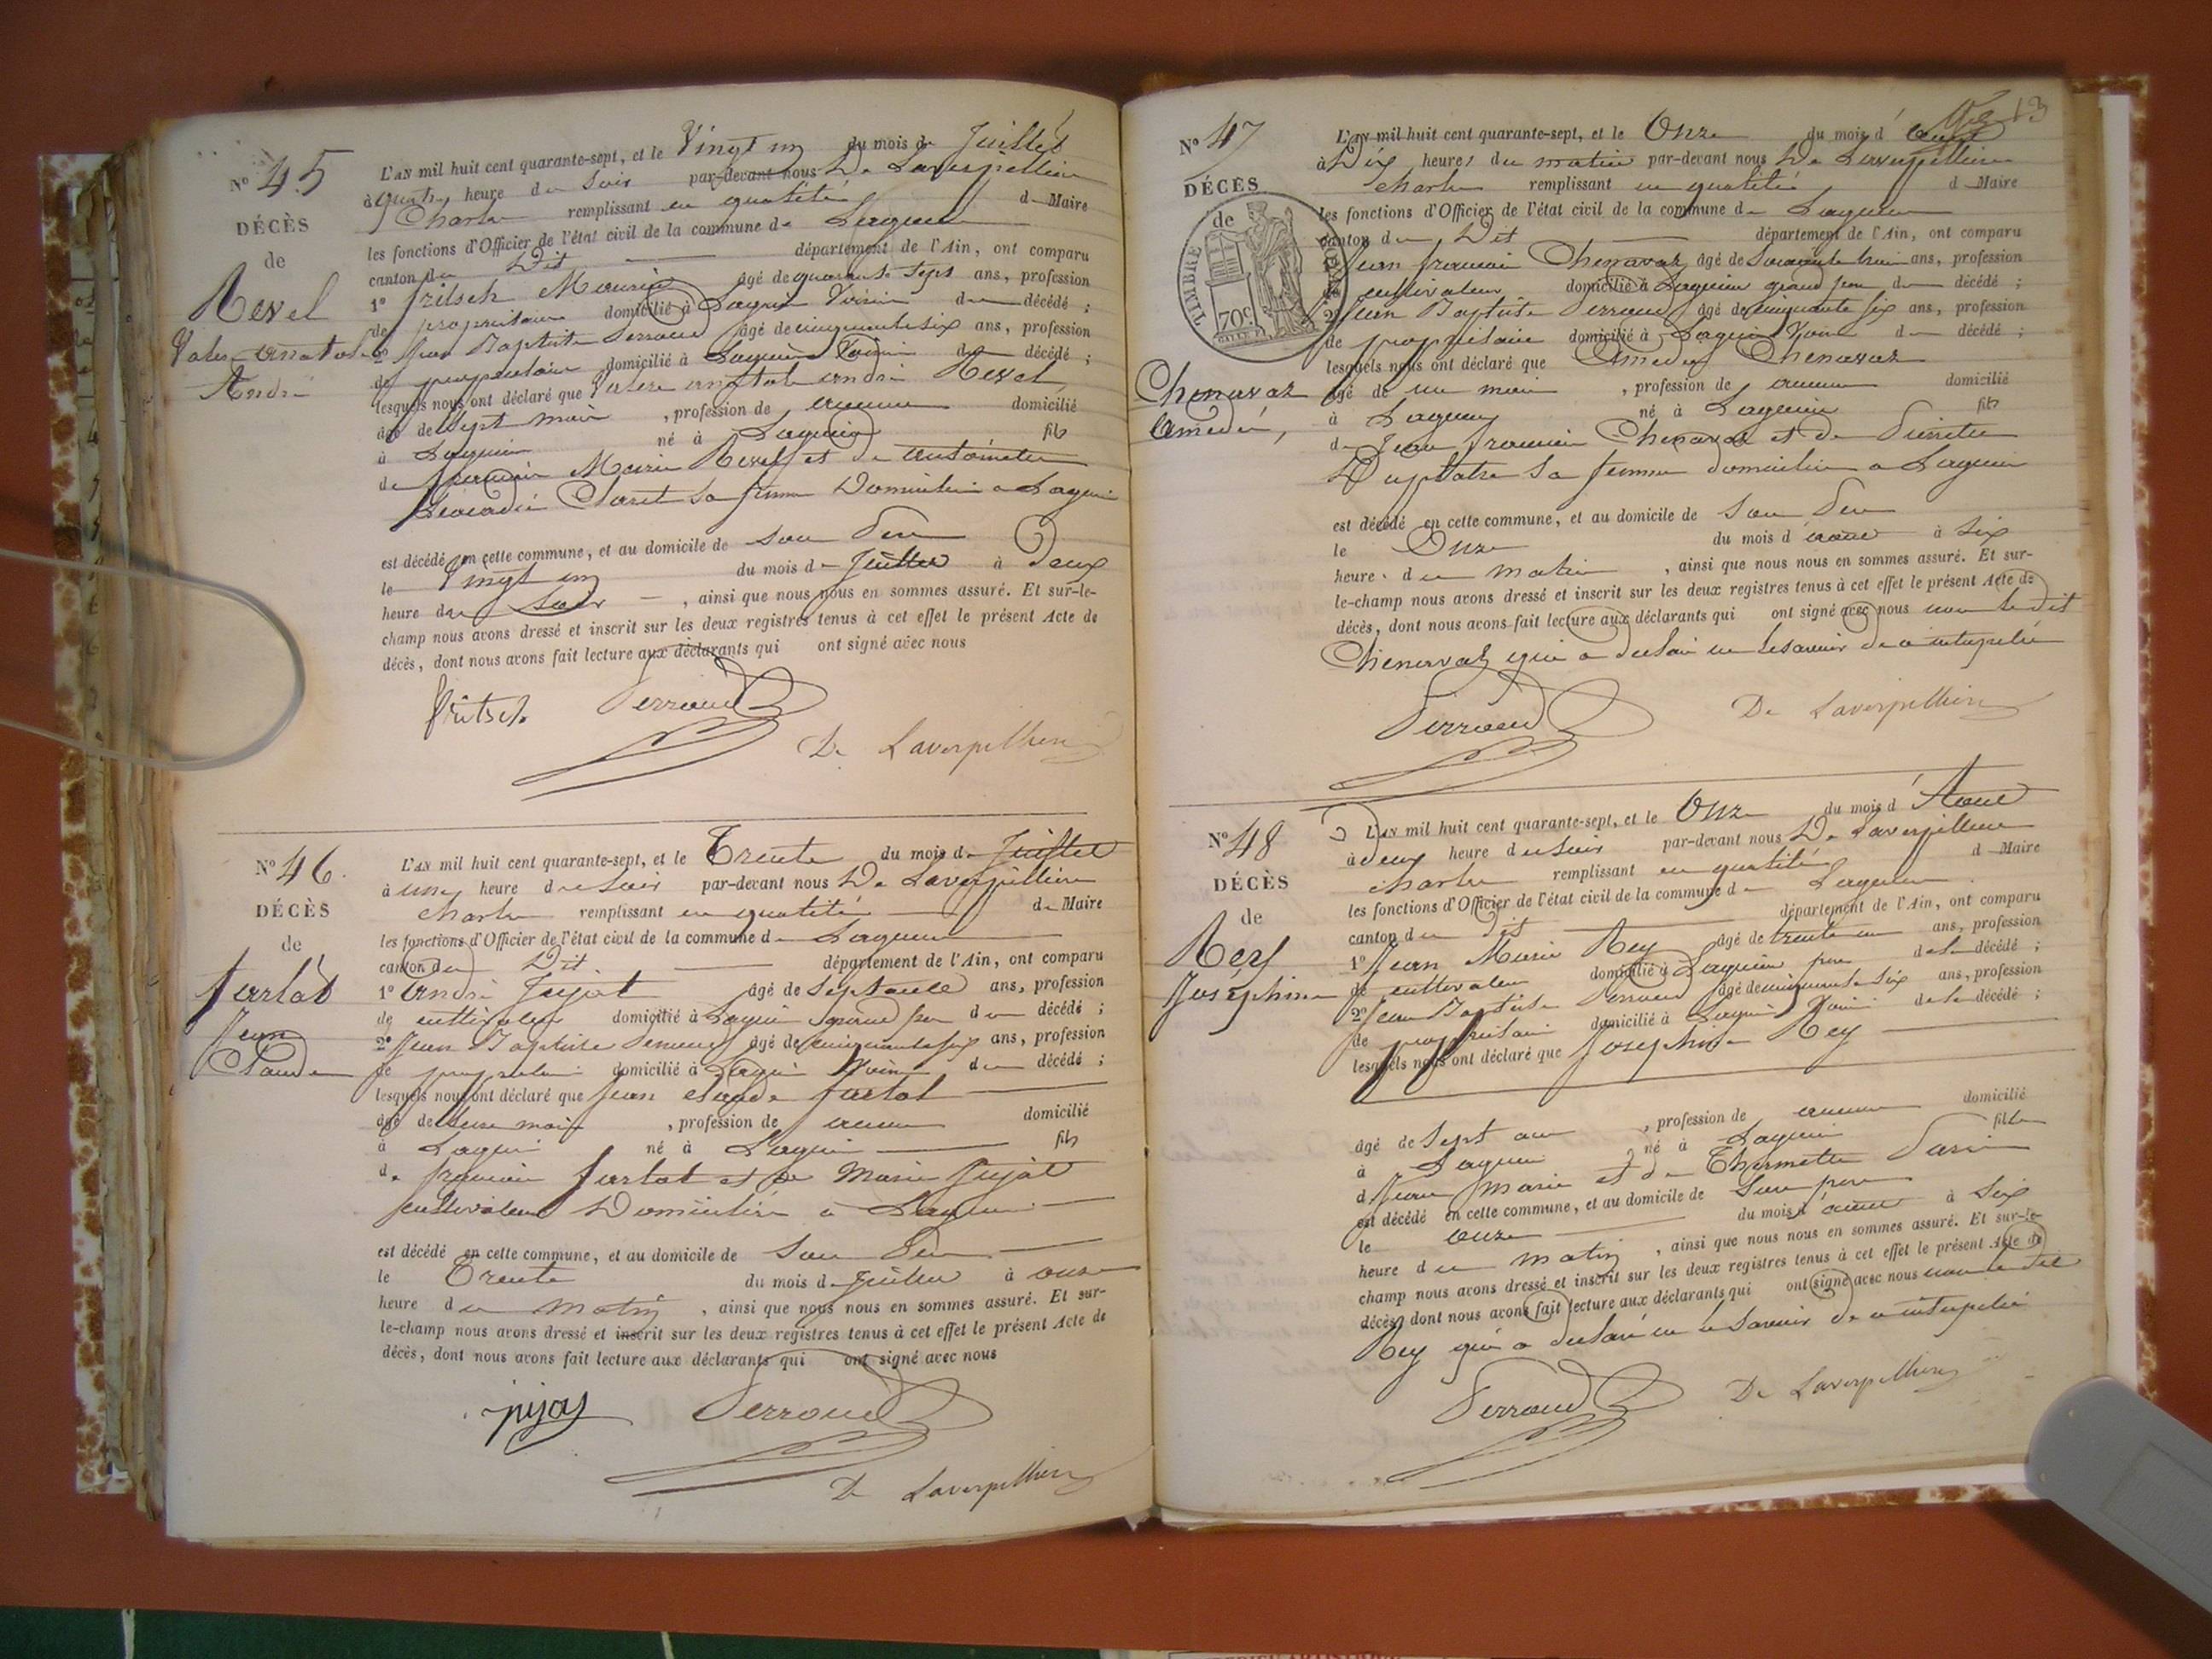 N° 45
DÉCÈS
de
Revel
Valere Anatole
André
L'AN mil huit cent quarante-sept, et le Vingt un du mois de Juillet
à quatre heure du Soir par-devant nous De Laverpillière
Charles remplissant en qualité de Maire
les fonctions d'Officier de l'état civil de la commune de Lagnieu
canton du Dit département de l'Ain, ont comparu
1° fritsch Maurice âgé de quarante Sept ans, profession
de propriétaire domicilié à Lagnieu Voisin du décédé ;
2° Jean Baptiste Perroud âgé de cinquante six ans, profession
de propriétaire domicilié à Lagnieu Voisin du décédé ;
lesquels nous ont déclaré que Valere anatole andré Revel
âgé de Sept mois , profession de aucune domicilié
à Lagnieu né à Lagnieu fils
de Marie Revel et de antoinette
Léocadie Claret sa femme Domiciliés a Lagnieu
est décédé en cette commune, et au domicile de son Père
le Vingt un du mois de Juillet à Deux
heure du Soir , ainsi que nous nous en sommes assuré. Et sur-le-
champ nous avons dressé et inscrit sur les deux registres tenus à cet effet le présent Acte de
décès, dont nous avons fait lecture aux déclarants qui ont signé avec nous
fritsch Perroud
De Laverpillière
N° 46.
DÉCÈS
de
furlat
Jean
Claude
L'AN mil huit cent quarante-sept, et le Trente du mois de Juillet
à une heure du Soir par-devant nous De Laverpillière
charles remplissant en qualité de Maire
les fonctions d'Officier de l'état civil de la commune de Lagnieu
canton du Dit département de l'Ain, ont comparu
1° André Jujat âgé de Septante ans, profession
de cultivateur domicilié à Lagnieu grand père du décédé ;
2° Jean Baptiste Perroud âgé de cinquante six ans, profession
de propriétaire domicilié à Lagnieu Voisin du décédé ;
lesquels nous ont déclaré que Jean claude furlat
âgé de mois , profession de aucune domicilié
à Lagnieu né à Lagnieu fils
de françois furlat et de Marie Jujat
cultivateurs Domiciliés à Lagnieu
est décédé en cette commune, et au domicile de Son Père
le Trente du mois de Juillet à onze
heure du matin , ainsi que nous nous en sommes assuré. Et sur-
le-champ nous avons dressé et inscrit sur les deux registres tenus à cet effet le présent Acte de
décès, dont nous avons fait lecture aux déclarants qui ont signé avec nous
jujat Perroud
De Laverpillière
13
N° 47
DÉCÈS
de
TIMBRE ROYAL
70c
Chenavaz
Amédée,
L'AN mil huit cent quarante-sept, et le Onze du mois d'Aout
à Dix heures du matin par-devant nous De Laverpillière
Charles remplissant en qualité d Maire
les fonctions d'Officier de l'état civil de la commune de Lagnieu
canton du Dit département de l'Ain, ont comparu
1° Jean françois Chenavaz âgé de Soixante trois ans, profession
de cultivateur domicilié à Lagnieu grand père du décédé ;
2° Jean Baptiste Perroud âgé de cinquante six ans, profession
de propriétaire domicilié à Lagnieu Voisin du décédé ;
lesquels nous ont déclaré que Amédée Chenavaz
âgé de un mois , profession de aucune domicilié
à Lagnieu né à Lagnieu fils
de Jean françois Chenavaz et de Pierrette
Duplatre Sa femme domiciliés a Lagnieu
est décédé en cette commune, et au domicile de Son Père
le Onze du mois d'aout à Six
heure. du matin , ainsi que nous nous en sommes assuré. Et sur-
le-champ nous avons dressé et inscrit sur les deux registres tenus à cet effet le présent Acte de
décès, dont nous avons fait lecture aux déclarants qui ont signé avec nous non le dit
Chenavaz qui a déclaré ne le savoir de ce interpellé
Perroud De Laverpillière
N° 48
DÉCÈS
de
Rey
Joséphine
L'AN mil huit cent quarante-sept, et le Onze du mois d'Aout
à deux heure du Soir par-devant nous De Laverpillière
charles remplissant en qualité d Maire
les fonctions d'Officier de l'état civil de la commune de Lagnieu
canton du dit département de l'Ain, ont comparu
1° Jean Marie Rey âgé de trente un ans, profession
de cultivateur domicilié à Lagnieu père de la décédé ;
2° Jean Baptiste Perroud âgé de cinquante Six ans, profession
de propriétaire domicilié à Lagnieu Voisin de la décédé ;
lesquels nous ont déclaré que Josephine Rey
âgé de Sept ans , profession de aucune domicilié
à Lagnieu né à Lagnieu fille
d Jean Marie et de Thermette
est décédé en cette commune, et au domicile de Son père
le onze du mois d'aout à Six
heure du matin , ainsi que nous nous en sommes assuré. Et sur-le-
champ nous avons dressé et inscrit sur les deux registres tenus à cet effet le présent Acte de
décès, dont nous avons fait lecture aux déclarants qui ont signé avec nous non le dit
Rey qui a déclaré ne le Savoir de ce interpellé
Perroud De Laverpillière